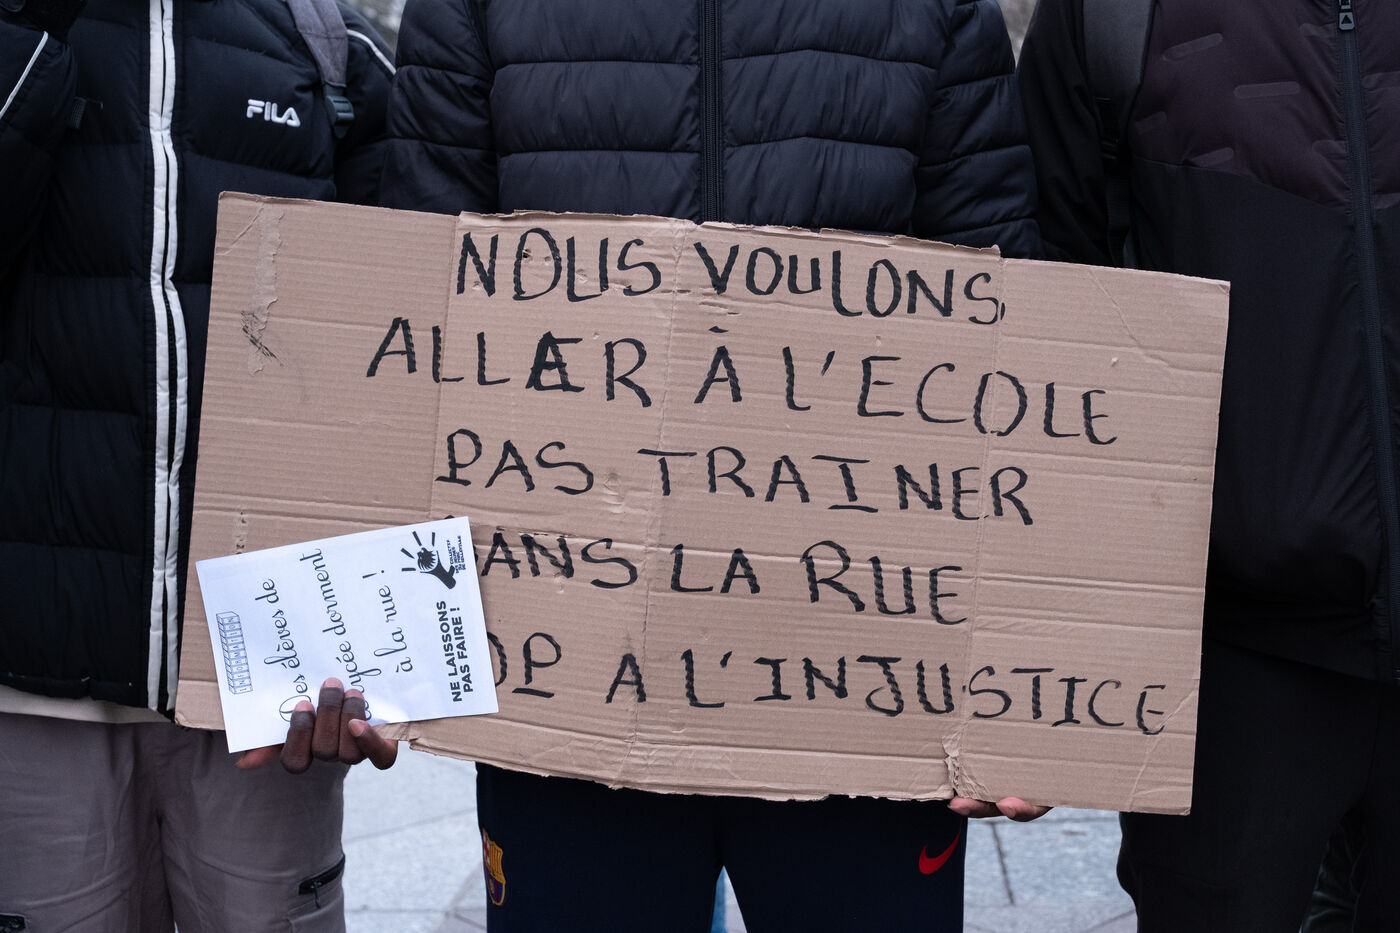 FILA
NOUS VOULONS
ALLER À L'ECOLE
PAS TRAINER
DANS LA RUE
OP A L'INJUSTICE
Des élèves de
lycée dorment
à la rue !
NE LAISSONS
PAS FAIRE !